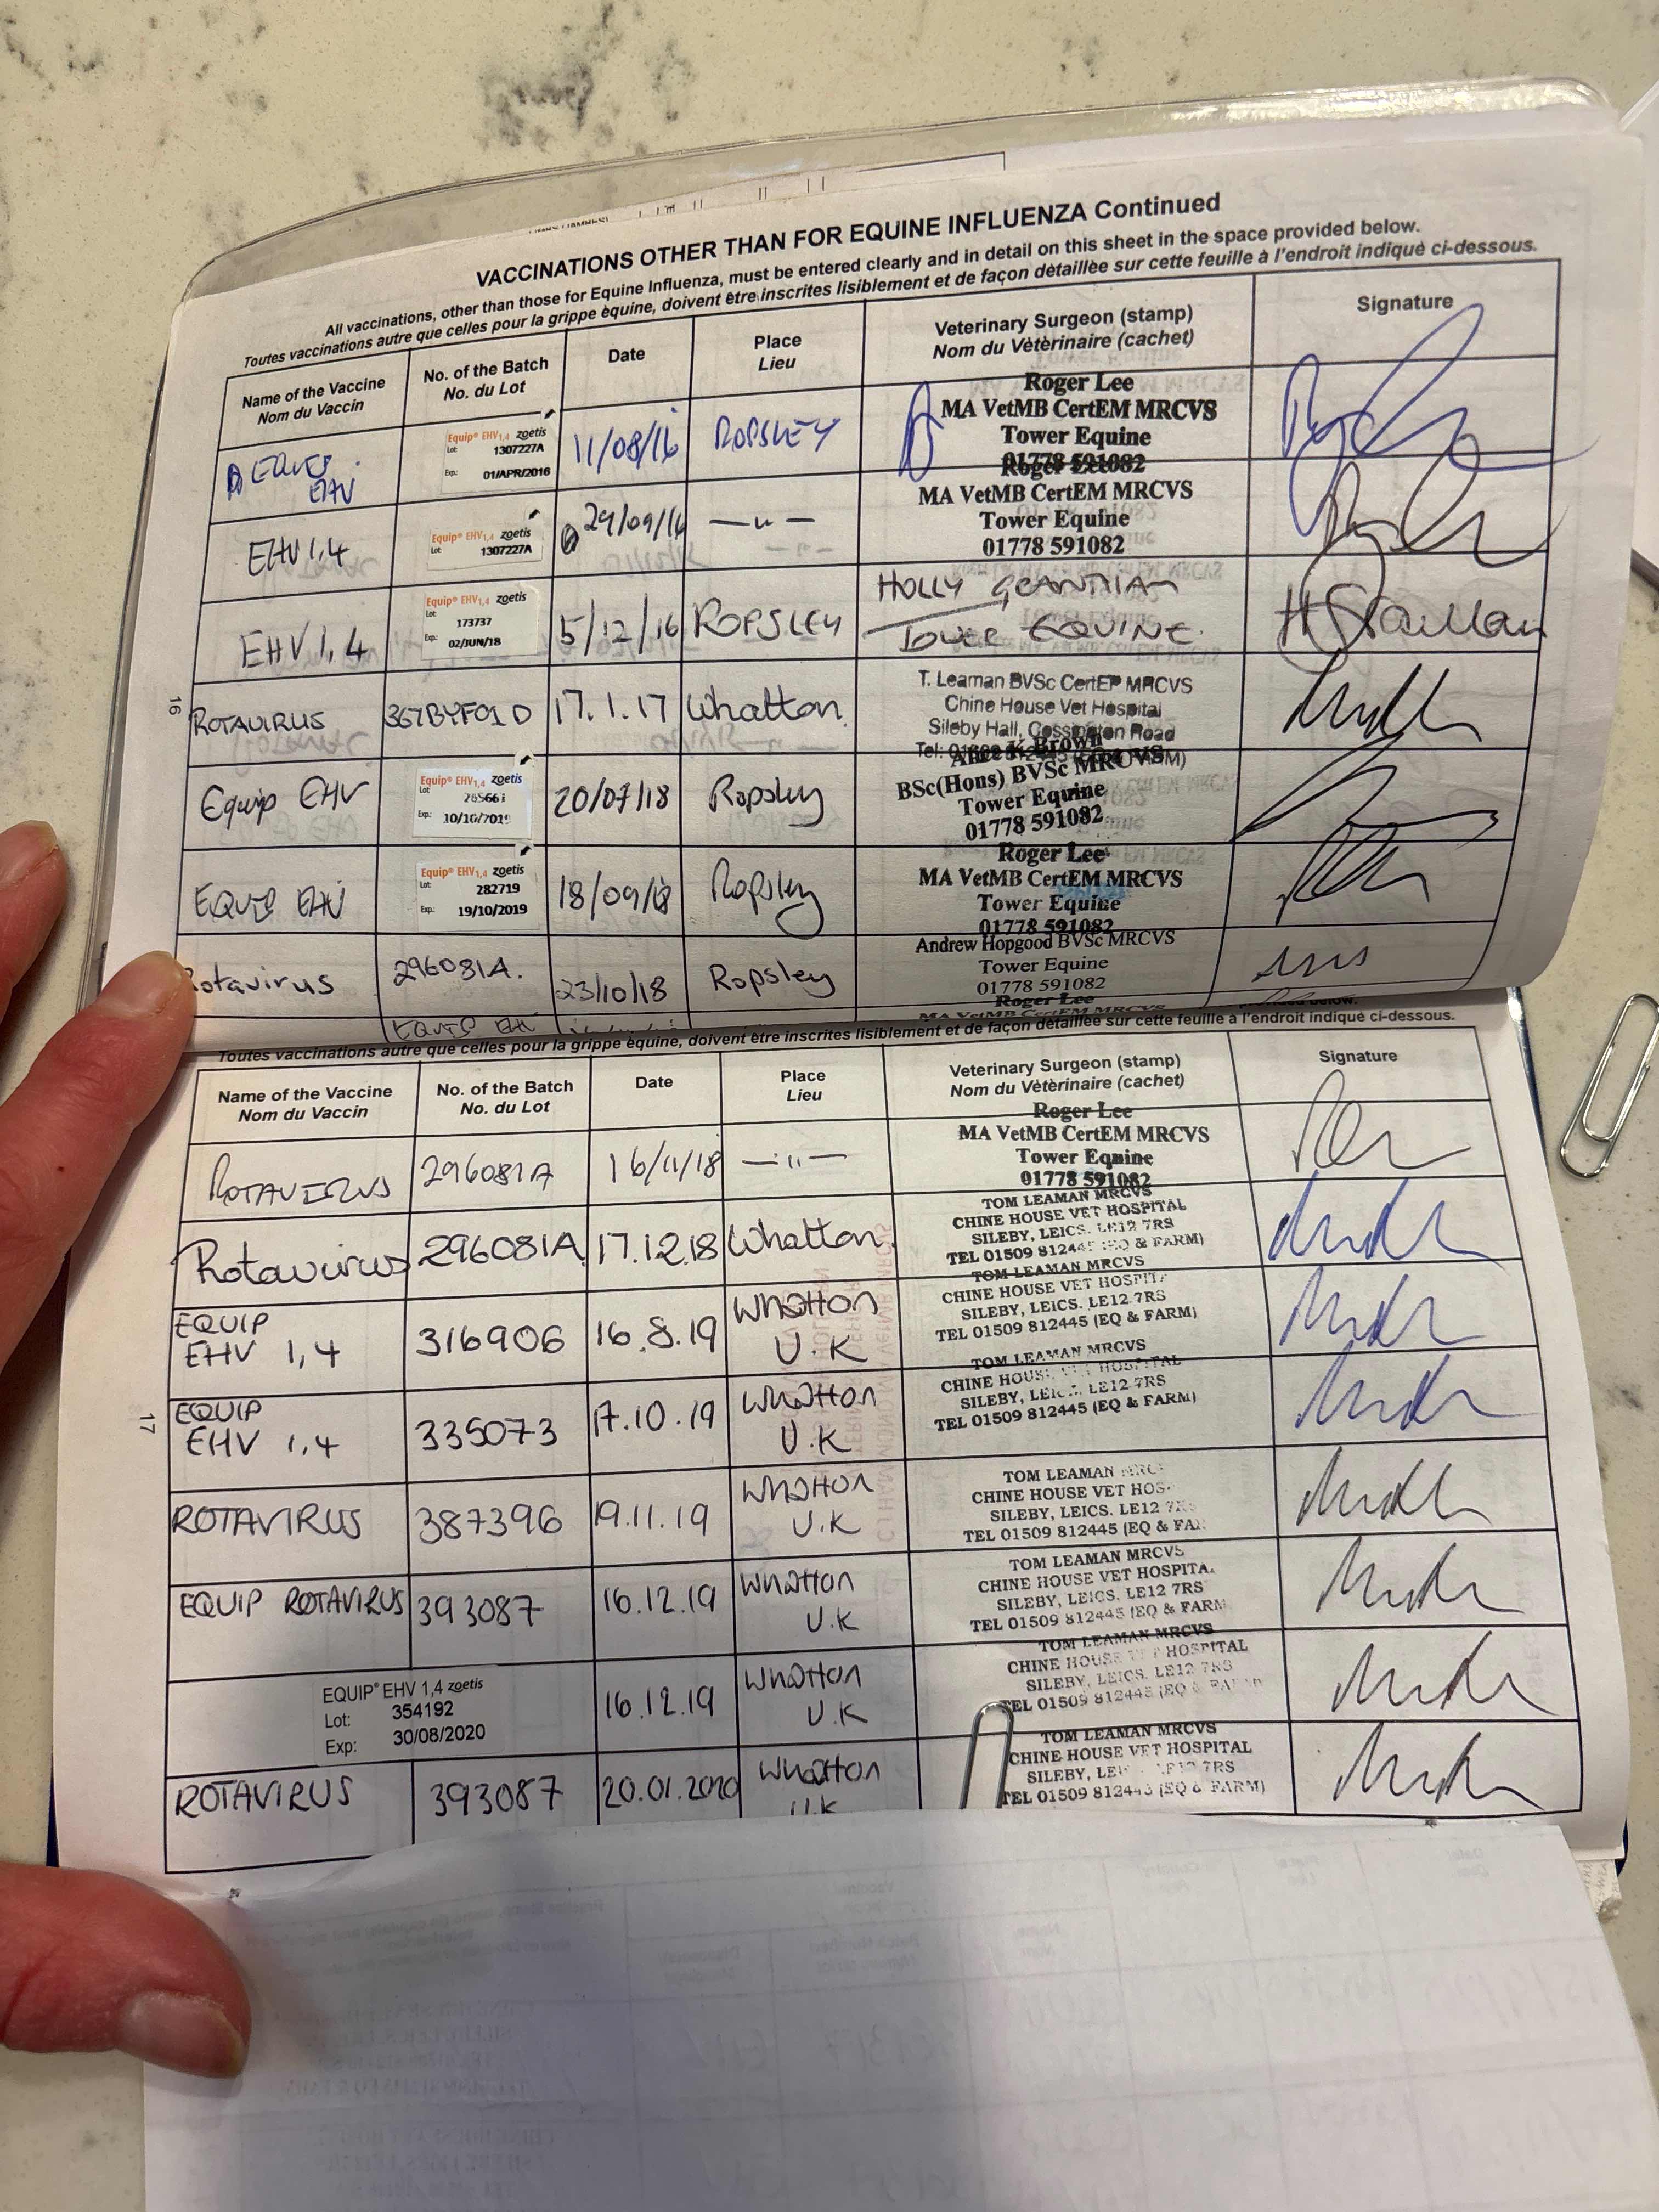 VACCINATIONS OTHER THAN FOR EQUINE INFLUENZA Continued
All vaccinations, other than those for Equine Influenza, must be entered clearly and in detail on this sheet in the space provided below.
Toutes vaccinations autre que celles pour la grippe équine, doivent être inscrites lisiblement et de façon détaillée sur cette feuille à l'endroit indiqué ci-dessous.
Name of the Vaccine
Nom du Vaccin
No. of the Batch
No. du Lot
Date
Place
Lieu
Veterinary Surgeon (stamp)
Nom du Vétérinaire (cachet)
Signature
EQUIP
EHV
Equip® EHV1,4 zoetis
Lot: 1307227A
Exp: 01/APR/2016
11/08/16
ROPSLEY
Roger Lee
MA VetMB CertEM MRCVS
Tower Equine
01778 591082
EHV 1,4
Equip® EHV1,4 zoetis
Lot: 1307227A
29/09/16
—"—
Roger Lee
MA VetMB CertEM MRCVS
Tower Equine
01778 591082
EHV 1,4
Equip® EHV1,4 zoetis
Lot: 173737
Exp: 02/JUN/18
5/12/16
ROPSLEY
HOLLY
TOWER EQUINE.
16
ROTAVIRUS
367BYF01D
17.1.17
Whatton.
T. Leaman BVSc CertEP MRCVS
Chine House Vet Hospital
Sileby Hall, Cossington Road
Equip EHV
Equip® EHV1,4 zoetis
Lot: 265661
Exp: 10/10/2019
20/07/18
Ropsley
Brown
BSc(Hons) BVSc MRCVS
Tower Equine
01778 591082
EQUIP EHV
Equip® EHV1,4 zoetis
Lot: 282719
Exp: 19/10/2019
18/09/18
Ropsley
Roger Lee
MA VetMB CertEM MRCVS
Tower Equine
01778 591082
Rotavirus
296081A.
23/10/18
Ropsley
Andrew Hopgood BVSc MRCVS
Tower Equine
01778 591082
Roger Lee
MA VetMB CertEM MRCVS
EQUIP EHV
Toutes vaccinations autre que celles pour la grippe équine, doivent être inscrites lisiblement et de façon détaillée sur cette feuille à l'endroit indiqué ci-dessous.
Name of the Vaccine
Nom du Vaccin
No. of the Batch
No. du Lot
Date
Place
Lieu
Veterinary Surgeon (stamp)
Nom du Vétérinaire (cachet)
Signature
ROTAVIRUS
296081A
16/11/18
—"—
Roger Lee
MA VetMB CertEM MRCVS
Tower Equine
01778 591082
Rotavirus
296081A
17.12.18
Whatton.
TOM LEAMAN MRCVS
CHINE HOUSE VET HOSPITAL
SILEBY, LEICS. LE12 7RS
TEL 01509 812445 (EQ & FARM)
EQUIP
EHV 1,4
316906
16.8.19
Whatton
U.K
TOM LEAMAN MRCVS
CHINE HOUSE VET HOSPITAL
SILEBY, LEICS. LE12 7RS
TEL 01509 812445 (EQ & FARM)
17
EQUIP
EHV 1,4
335073
17.10.19
Whatton
U.K
TOM LEAMAN MRCVS
CHINE HOUSE VET HOSPITAL
SILEBY, LEICS. LE12 7RS
TEL 01509 812445 (EQ & FARM)
ROTAVIRUS
387396
19.11.19
Whatton
U.K
TOM LEAMAN MRCVS
CHINE HOUSE VET HOS
SILEBY, LEICS. LE12 7RS
TEL 01509 812445 (EQ & FA
EQUIP ROTAVIRUS
393087
16.12.19
Whatton
U.K
TOM LEAMAN MRCVS
CHINE HOUSE VET HOSPITA
SILEBY, LEICS. LE12 7RS
TEL 01509 812445 (EQ & FARM
EQUIP® EHV 1,4 zoetis
Lot: 354192
Exp: 30/08/2020
16.12.19
Whatton
U.K
TOM LEAMAN MRCVS
CHINE HOUSE VET HOSPITAL
SILEBY, LEICS. LE12 7RS
TEL 01509 812445 (EQ & FARM
ROTAVIRUS
393087
20.01.2020
Whatton
U.K
TOM LEAMAN MRCVS
CHINE HOUSE VET HOSPITAL
SILEBY, LE12 7RS
TEL 01509 812445 (EQ & FARM)